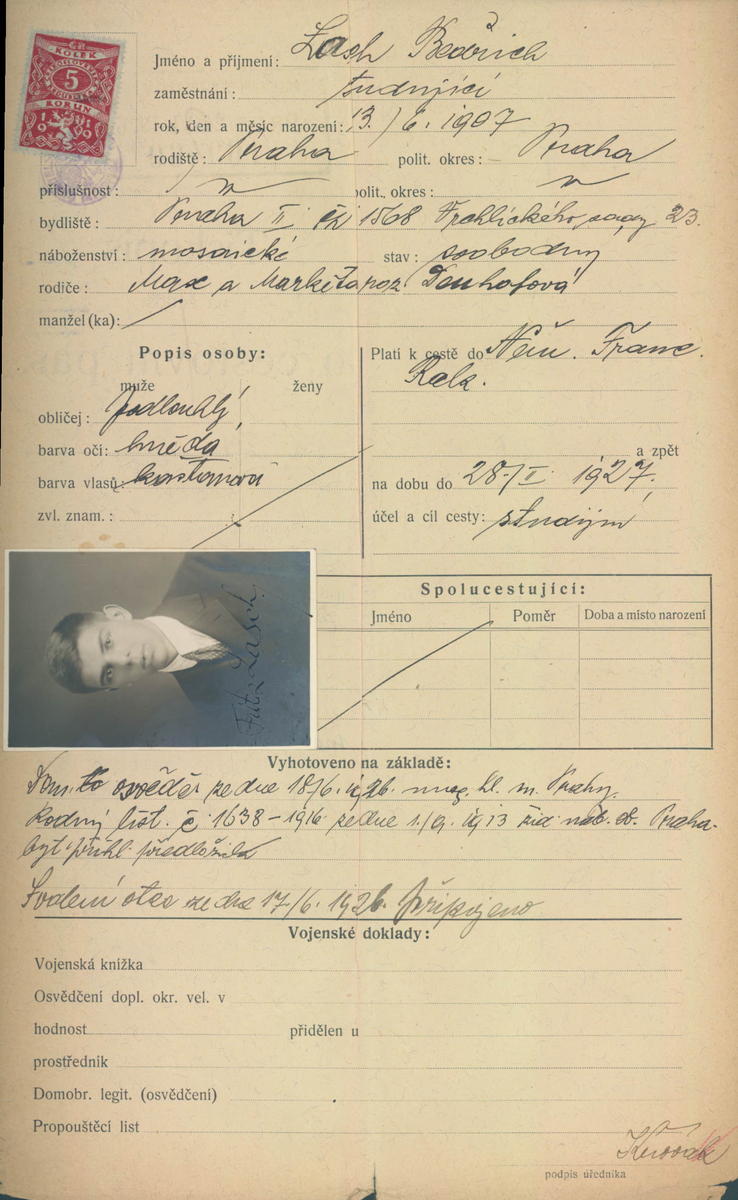 KOLEK
ČESKOSLOVENSKÁ REPUBLIKA
5
KORUN
1919
Jméno a příjmení: Lash Bedřich
zaměstnání: studující
rok, den a měsíc narození: 13./6. 1907
rodiště: Praha polit. okres: Praha
příslušnost: polit. okres:
bydliště: Praha II čp 1568 Vrchlického sady 23.
náboženství: mosaické stav: svobodný
rodiče: Max a Markéta roz.
manžel(ka): /
Popis osoby:
muže ženy
obličej: podlouhlý
barva očí: hnědá
barva vlasů: kaštanová
zvl. znam.:
Platí k cestě do Něm. Franc.
Rak.
a zpět
na dobu do 28./II. 1927,
účel a cíl cesty: studijní
Fritz Lasch
Spolucestující:
Jméno Poměr Doba a místo narození
Vyhotoveno na základě:
Dom. osvědč ze dne 18/6. 1926. mag. hl. m. Prahy.
Rodný list. č 1638-1916 ze dne 1./9. 1913 žid. náb. ob. Praha.
byt. přihl. předložil
Svolení otce ze dne 17/6. 1926. připojeno
Vojenské doklady:
Vojenská knížka
Osvědčení dopl. okr. vel. v
hodnost přidělen u
prostředník
Domobr. legit. (osvědčení)
Propouštěcí list
podpis úředníka